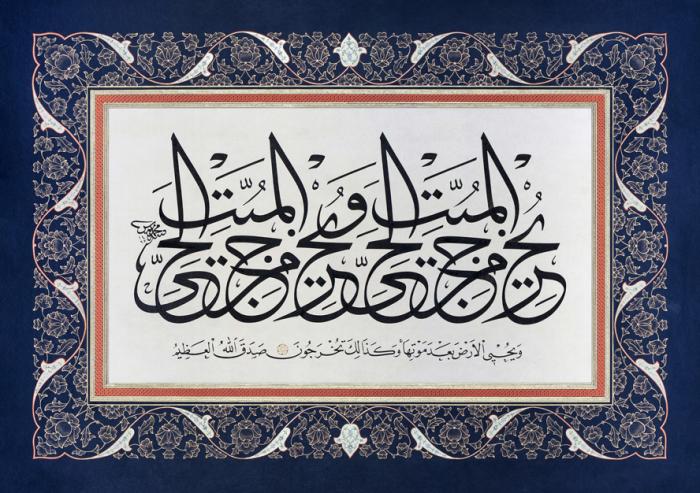 يُخْرِجُ الْحَيَّ مِنَ الْمَيِّتِ وَيُخْرِجُ الْمَيِّتَ مِنَ الْحَيِّ
وَيُحْيِي الْأَرْضَ بَعْدَ مَوْتِهَا وَكَذَالِكَ تُخْرَجُونَ صَدَقَ اللهُ الْعَظِيمُ